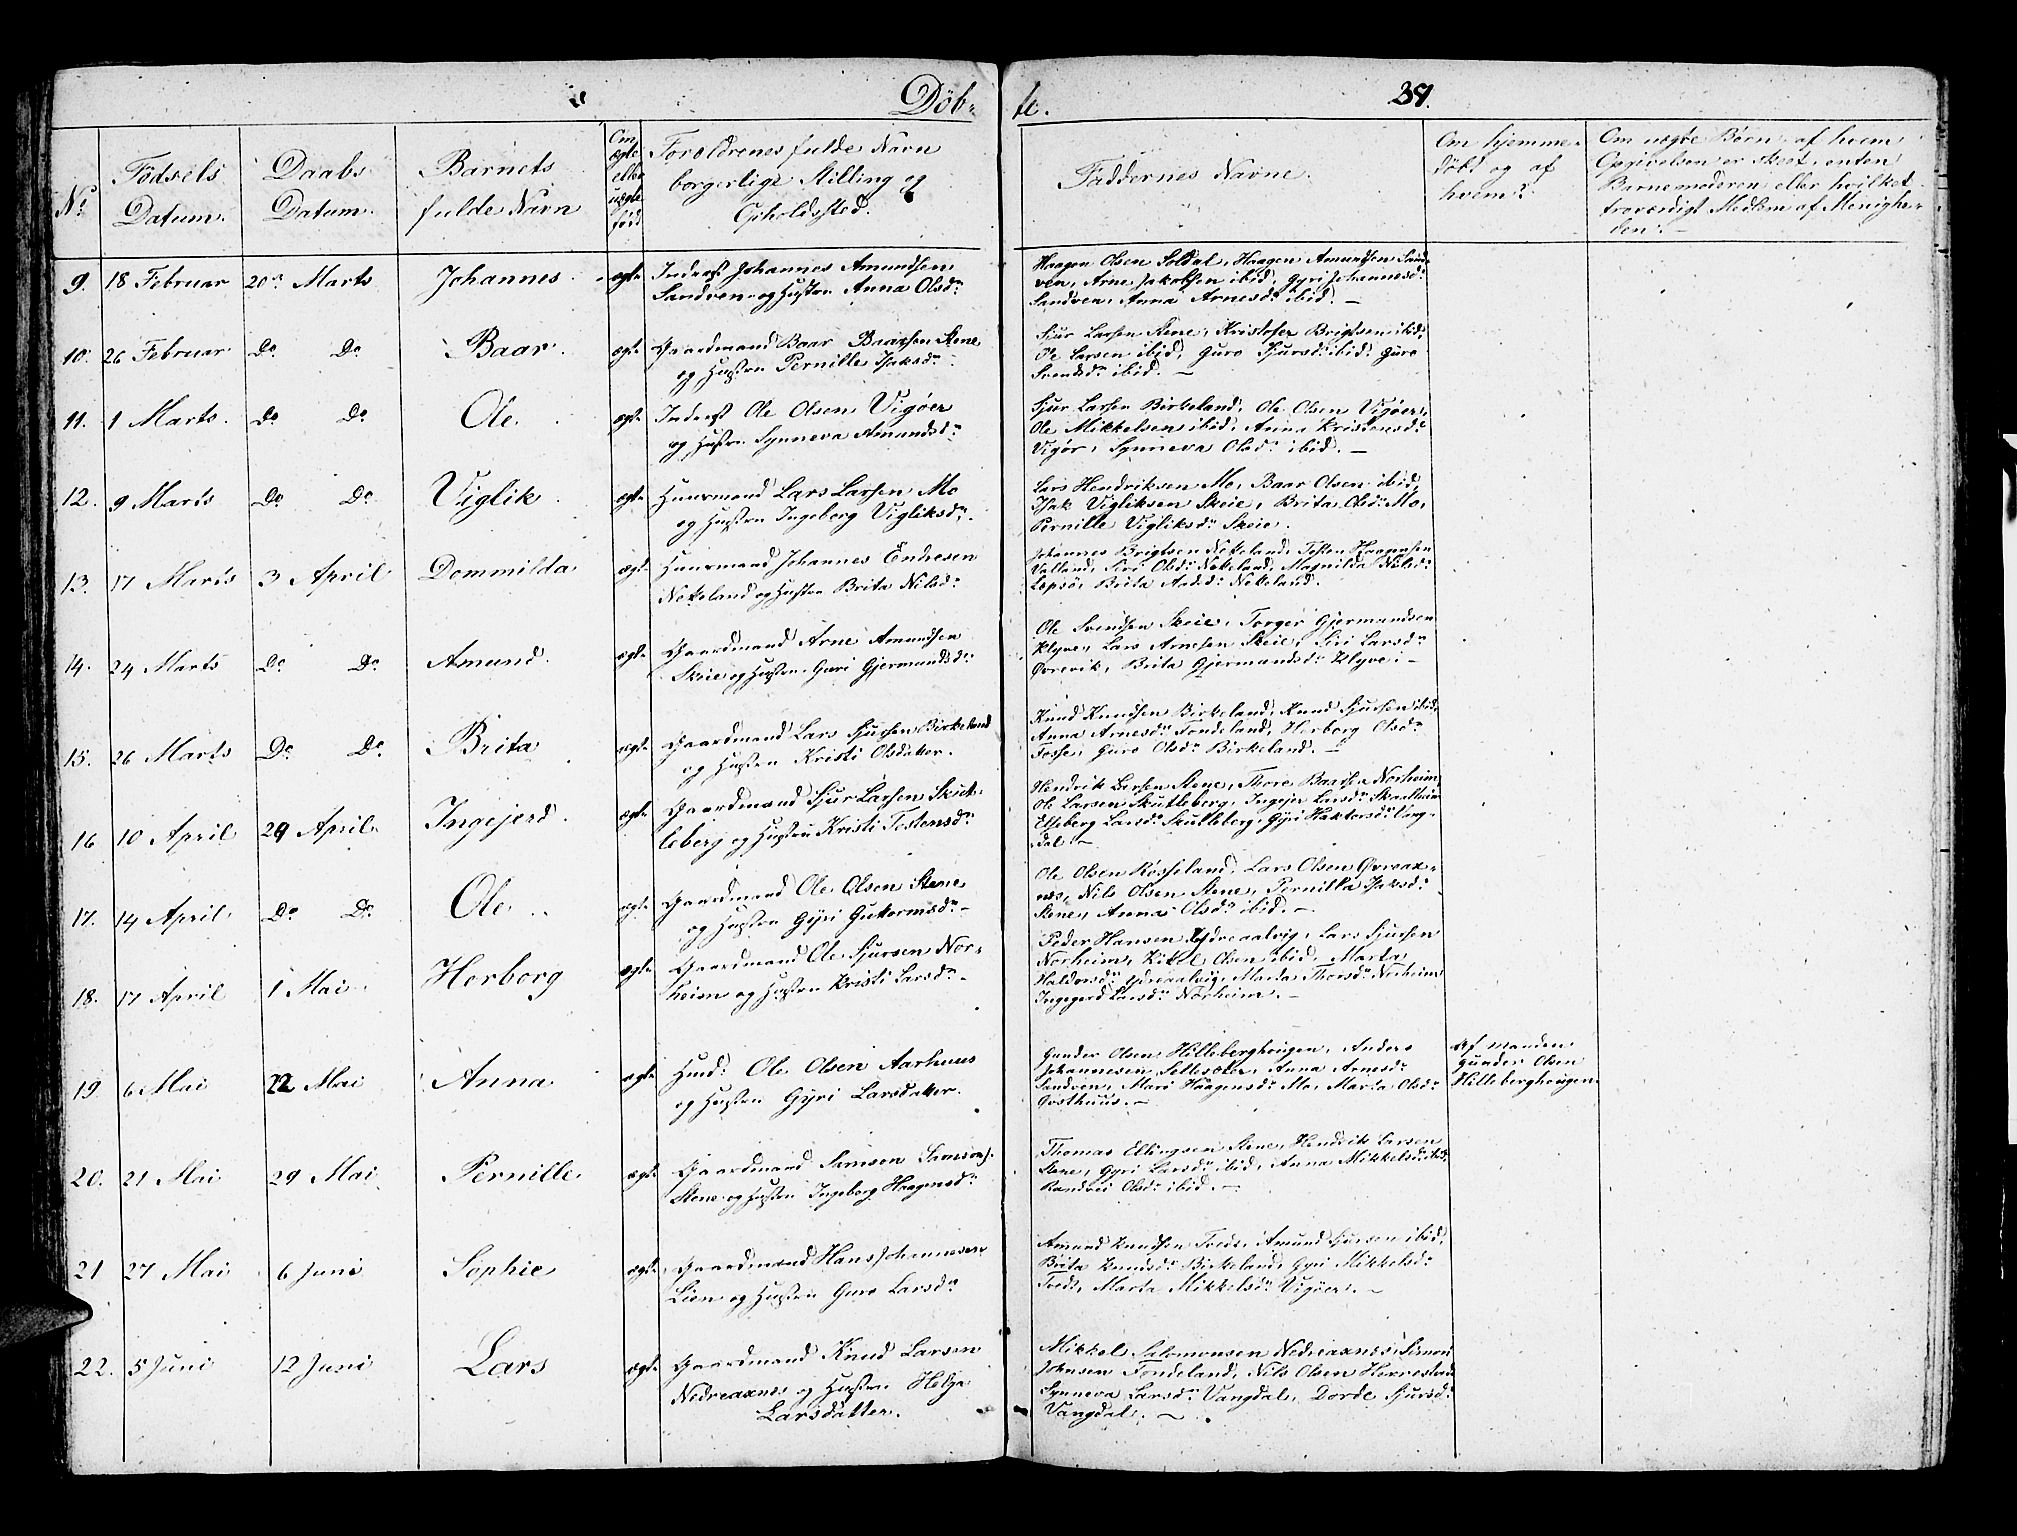 Döb- te. 39.
No
Födsels Datum.
Daabs Datum.
Barnets fulde Navn
Om ægte eller uægte född
Foreldrenes fulde Navn borgerlige Stilling og Opholdssted.
Faddernes Navne.
Om hjemme- döbt og af hvem?
Om uægte Børn, af hvem Opgivelsen er skeet, enten Barnemoderen eller hvilket troværdigt Medlem af Menighe- den.
9. 18 Februar 20de Marts Johannes ægte Inderst Johannes Amundsen
Sandven og Hustru Anna Olsdr
Haagen Olsen Soldal, Haagen Amundsen Sand-
ven, Arne Jakobsen ibid, Gyri Johannesdr
Sandven, Anna Arnesdr ibid. —
10. 26 Februar Do Do Baar. ægte Gaardmand Baar Baarsen Stene
og Hustru Pernille Isaksdr
Sjur Larsen Stene, Kristofer Brigtsen ibid,
Ole Larsen ibid, Guro Sjursdr ibid, Guro
Svendsdr ibid. —
11. 1 Marts. Do Do Ole. ægte Inderst Ole Olsen Vigøer
og Hustru Synneva Amundsdr
Sjur Larsen Birkeland, Ole Olsen Vigöer,
Ole Mikkelsen ibid, Anna Kristensdr
Vigör, Synneva Olsdr ibid. —
12. 9 Marts Do Do Viglik ægte Huusmand Lars Larsen Mo
og Hustru Ingeborg Vigliksdr.
Lars Hendriksen Mo, Baar Olsen ibid,
Isak Vigliksen Skeie, Brita Olsdr Mo,
Pernille Vigliksdr Skeie.
13. 17 Marts 3 April Dommilda ægte Huusmand Johannes Endresen
Nökeland og Hustru Brita Nilsdr
Johannes Brigtsen Nökeland, Tosten Haagensen
Valland, Siri Olsdr Nökeland, Magnilda Nilsdr
Lepsö, Brita Aadsdr Nökeland.
14. 24 Marts Do Do Amund. ægte Gaardmand Arne Amundsen
Skeie og Hustru Guri Gjermundsdr
Ole Svendsen Skeie, Torger Gjermundsen
Klyve, Lars Arnesen Skeie, Siri Larsdr
Øvrevik, Brita Gjermundsdr Klyve. —
15. 26 Marts Do Do Brita ægte Gaardmand Lars Sjursen Birkeland
og Hustru Kristi Olsdatter.
Knud Knudsen Birkeland, Knud Sjursen ibid,
Anna Arnesdr Tondeland, Herborg Olsdr
Fosse, Guro Olsdr Birkeland. —
16 10 April 24 April Ingejerd. ægte Gaardmand Sjur Larsen Skut-
leberg og Hustru Kristi Tostensdr
Hendrik Larsen Stene, Thore Baarsen Norheim,
Ole Larsen Skutleberg, Ingejer Larsdr
Elseberg Larsdr Skutleberg, Gyri Haktorsdr Vang-
dal. —
17. 14 April Do Do Ole. ægte Gaardmand Ole Olsen Stene
og Hustru Gyri Guttormsdr —
Ole Olsen Røsseland, Lars Olsen Øvreax-
nes, Nils Olsen Stene, Pernilla Isaksdr
Stene, Anna Olsdr ibid. —
18. 17 April 1 Mai Herborg ægte Gaardmand Ole Sjursen Nor-
heim og Hustru Kristi Larsdr —
Peder Hansen Ydreaalvig, Lars Sjursen
Norheim, Kikel Olsen ibid, Marta
Haldorsdr Ydreaalvig, Marta Thorsdr Norheim
Ingegerd Larsdr Norheim. —
19. 6 Mai 22 Mai Anna ægte Huusd: Ole Olsen Aarhuus
og Hustru Gyri Larsdatter.
Gunder Olsen Hilleberghougen, Anders
Johannesen, Anna Arnesdr
Sandven, Mari Haagensdr Mo, Marta Olsdr
Gosthuus. —
Af manden Gunder Olsen Hilleberghougen
20. 21 Mai 29 Mai Pernille. ægte Gaardmand Samson Samsons.
Stene og Hustru Ingeborg Haagensdr
Thomas Ellingsen Stene, Hendrik Larsen
Stene, Gyri Larsdr ibid, Anna Mikkelsdr ibid,
Randvei Olsdr ibid. —
21 27 Mai 6 Juni Sophie ægte Gaardmand Hans Johannesen
Lien og Hustru Guro Larsdr
Amund Knudsen Tvedt, Amund Sjursen ibid,
Brita Knudsdr Birkeland, Gyri Mikkelsdr
Tvedt, Marta Mikkelsdr Vigöer. —
22. 5 Juni 12 Juni Lars ægte Gaardmand Knud Larsen
Nedreaxnes og Hustru Helga
Larsdatter.
Mikkel Salomonsen Nedreaxnes, Simon
Johnsen Tondeland, Nils Olsen
Synneva Larsdr Vangdal, Dorde Sjursdr
Vangdal. —